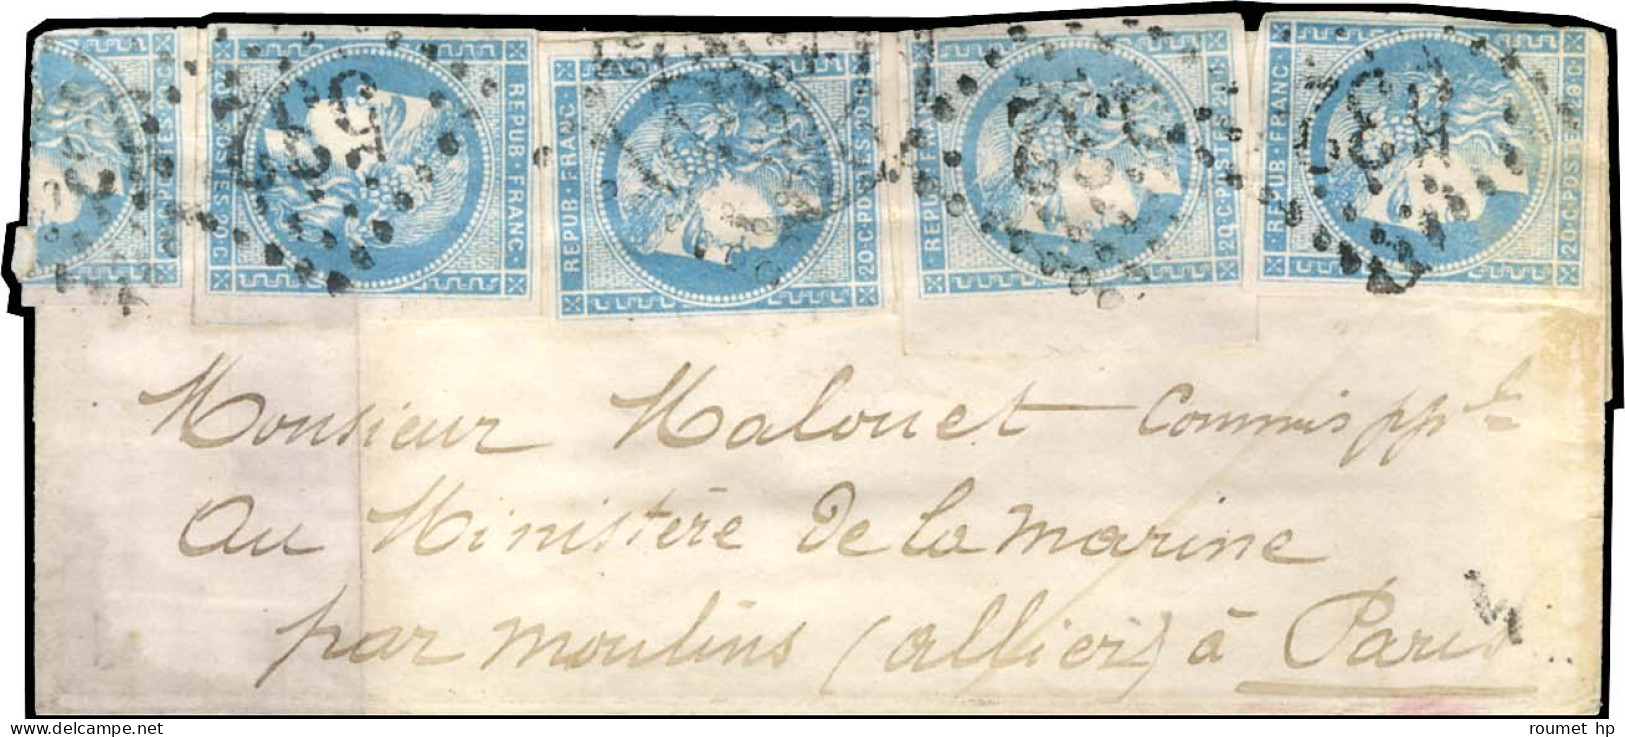 REPUB·FRANC·
REPUB·FRANC·
20·C·POSTES·20·C
REPUB·FRANC·
20·C·POSTES·20·C
REPUB·FRANC·
20·C·POSTES·20·C
Monsieur Malouet Commis ppal
Au Ministère De la marine
par moulins (allier) à Paris
roumet hp